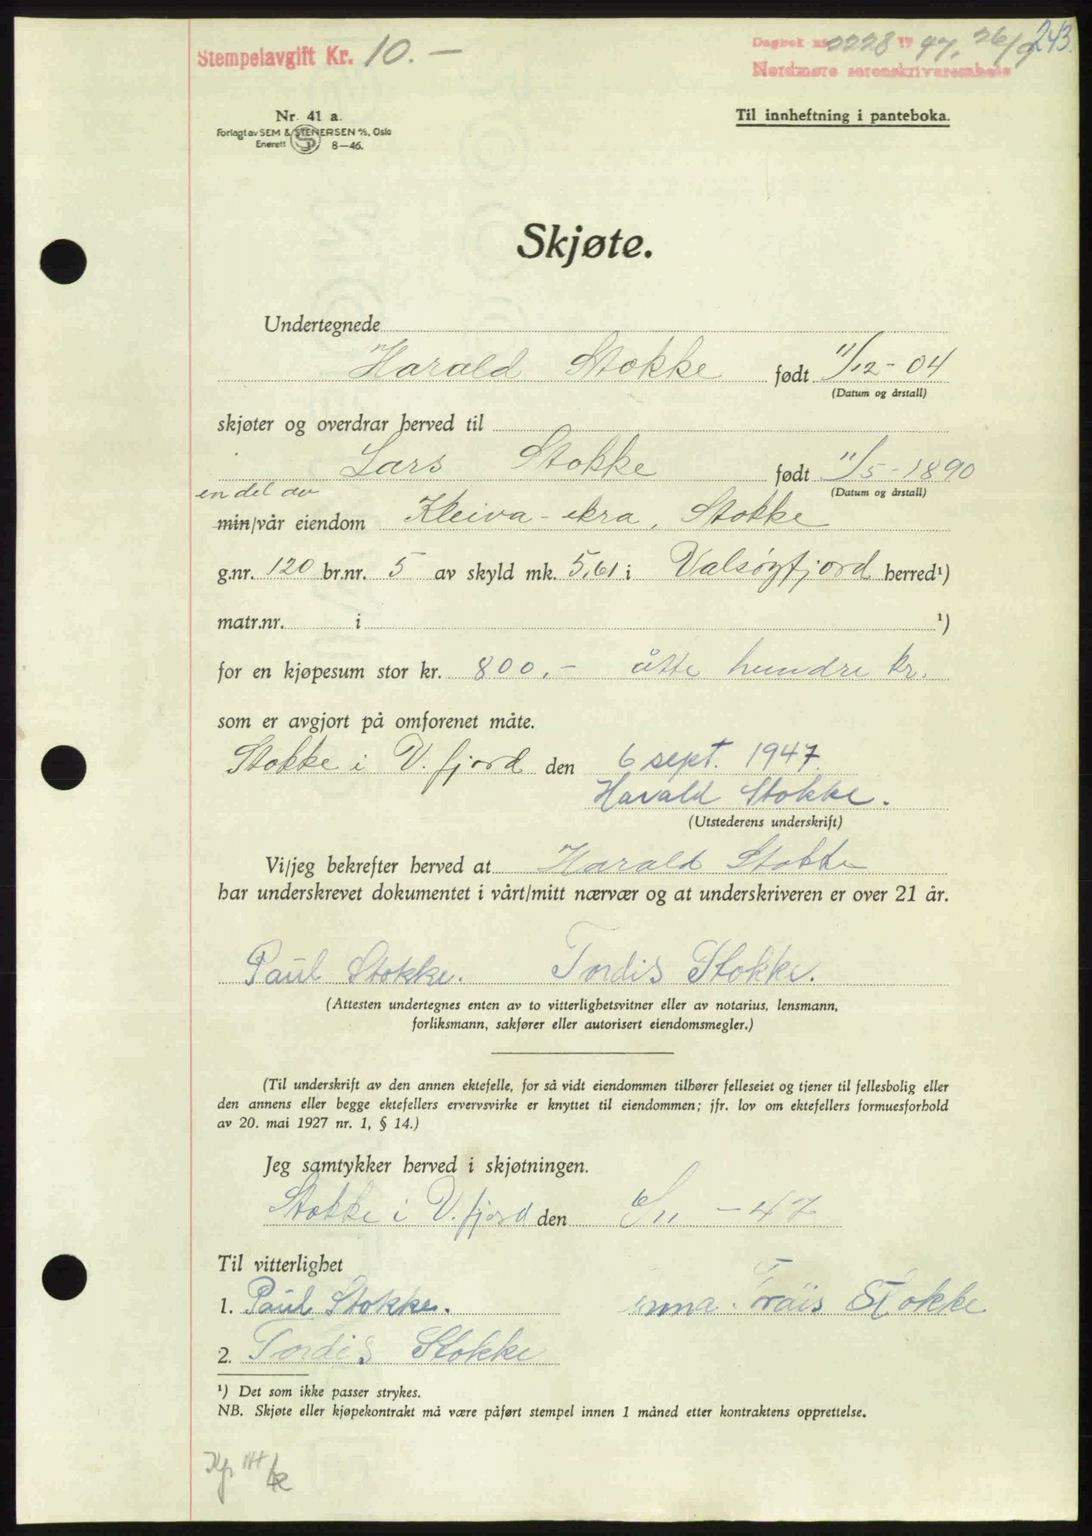 Stempelavgift Kr. 10.—
Dagbok nr. 2228 19 47, 26/9
243.
Nordmøre sorenskriverembete
Nr. 41 a.
Forlagt av SEM & STENERSEN A/S, Oslo
Enerett 8—46.
Til innheftning i panteboka.
Skjøte.
Undertegnede
Harald Stokke født 11/12 - 04
(Datum og årstall)
skjøter og overdrar herved til
Lars Stokke født 11/5 - 1890
(Datum og årstall)
en del av
min/vår eiendom Kleiva - ekra, Stokke
g.nr. 120 br.nr. 5 av skyld mk. 5,61 i Valsøyfjord herred¹)
matr.nr. i ¹)
for en kjøpesum stor kr. 800,- åtte hundre kr.
som er avgjort på omforenet måte.
Stokke i V. fjord den 6 sept. 1947.
Harald Stokke.
(Utstederens underskrift)
Vi/jeg bekrefter herved at Harald Stokke
har underskrevet dokumentet i vårt/mitt nærvær og at underskriveren er over 21 år.
Paul Stokke. Tordis Stokke.
(Attesten undertegnes enten av to vitterlighetsvitner eller av notarius, lensmann,
forliksmann, sakfører eller autorisert eiendomsmegler.)
(Til underskrift av den annen ektefelle, for så vidt eiendommen tilhører felleseiet og tjener til fellesbolig eller
den annens eller begge ektefellers ervervsvirke er knyttet til eiendommen; jfr. lov om ektefellers formuesforhold
av 20. mai 1927 nr. 1, § 14.)
Jeg samtykker herved i skjøtningen.
Stokke i V. fjord den 6/11 - 47
Til vitterlighet
1. Paul Stokke. Stokke
2. Tordis Stokke
¹) Det som ikke passer strykes.
NB. Skjøte eller kjøpekontrakt må være påført stempel innen 1 måned etter kontraktens opprettelse.